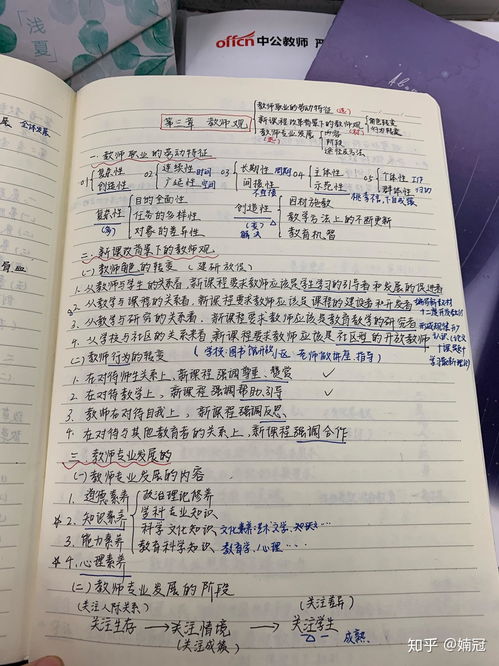 浅夏
offcn 中公教师
第二章 教师观
教师职业的劳动特征(选)
新课程改革背景下的教师观
角色转变
行为转变
教师专业发展
内容
阶段
途径与方法
一. 教师职业的劳动特征
01 复杂性 创造性
02 连续性 时间 广延性 空间
03 长期性 周期 间接性 不直接
04 主体性 示范性
05 个体性 工作 群体性
桃李不言,下自成蹊
复杂性
目的全面性
任务的多样性
对象的差异性
创造性
因材施教
教学方法上的不断更新
教育机智
二. 新课改背景下的教师观
(一) 教师角色的转变 (建研放促)
1. 从教师与学生的关系看,新课程要求教师应该是学生学习的引导者和发展的促进者
2. 从教学与课程的关系看,新课程要求教师应该是课程的建设者和开发者
3. 从教学与研究的关系看,新课程要求教师应该是教育教学的研究者
4. 从学校与社区的关系来看,新课程要求教师应该是社区型的开放教师
(学校:图书馆开放小区,老师做讲座、指导)
(二) 教师行为的转变
1. 在对待师生关系上,新课程强调尊重、赞赏 ✓
2. 在对待教学上,新课程强调帮助、引导 ✓
3. 教师在对待自我上,新课程强调反思
4. 在对待与其他教育者的关系上,新课程强调合作
三. 教师专业发展的
(一) 教师专业发展的内容
1. 道德素养
2. 知识素养
政治理论修养
学科专业知识
科学文化知识
教育科学知识 教育学、心理…
3. 能力素养
4. 心理素养
(二) 教师专业发展的阶段
(关注人际关系) (关注差异)
关注生存 → 关注情境 → 关注学生
(关注成绩) 成熟
知乎 @婻冠